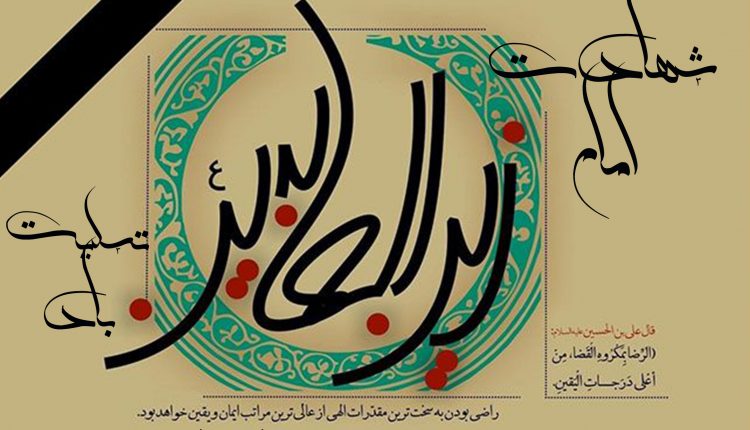 شهادت
امام
زین العابدین
ع
تسلیت
باد
قال علی بن الحسین علیه‌السلام:
(الرّضا بِمَکْروهِ الْقَضاءِ، مِنْ
أعْلی دَرَجــاتِ الْیَقینِ.
راضی بودن به سخت‌ترین مقدّرات الهی از عالی‌ترین مراتب ایمان و یقین خواهد بود.